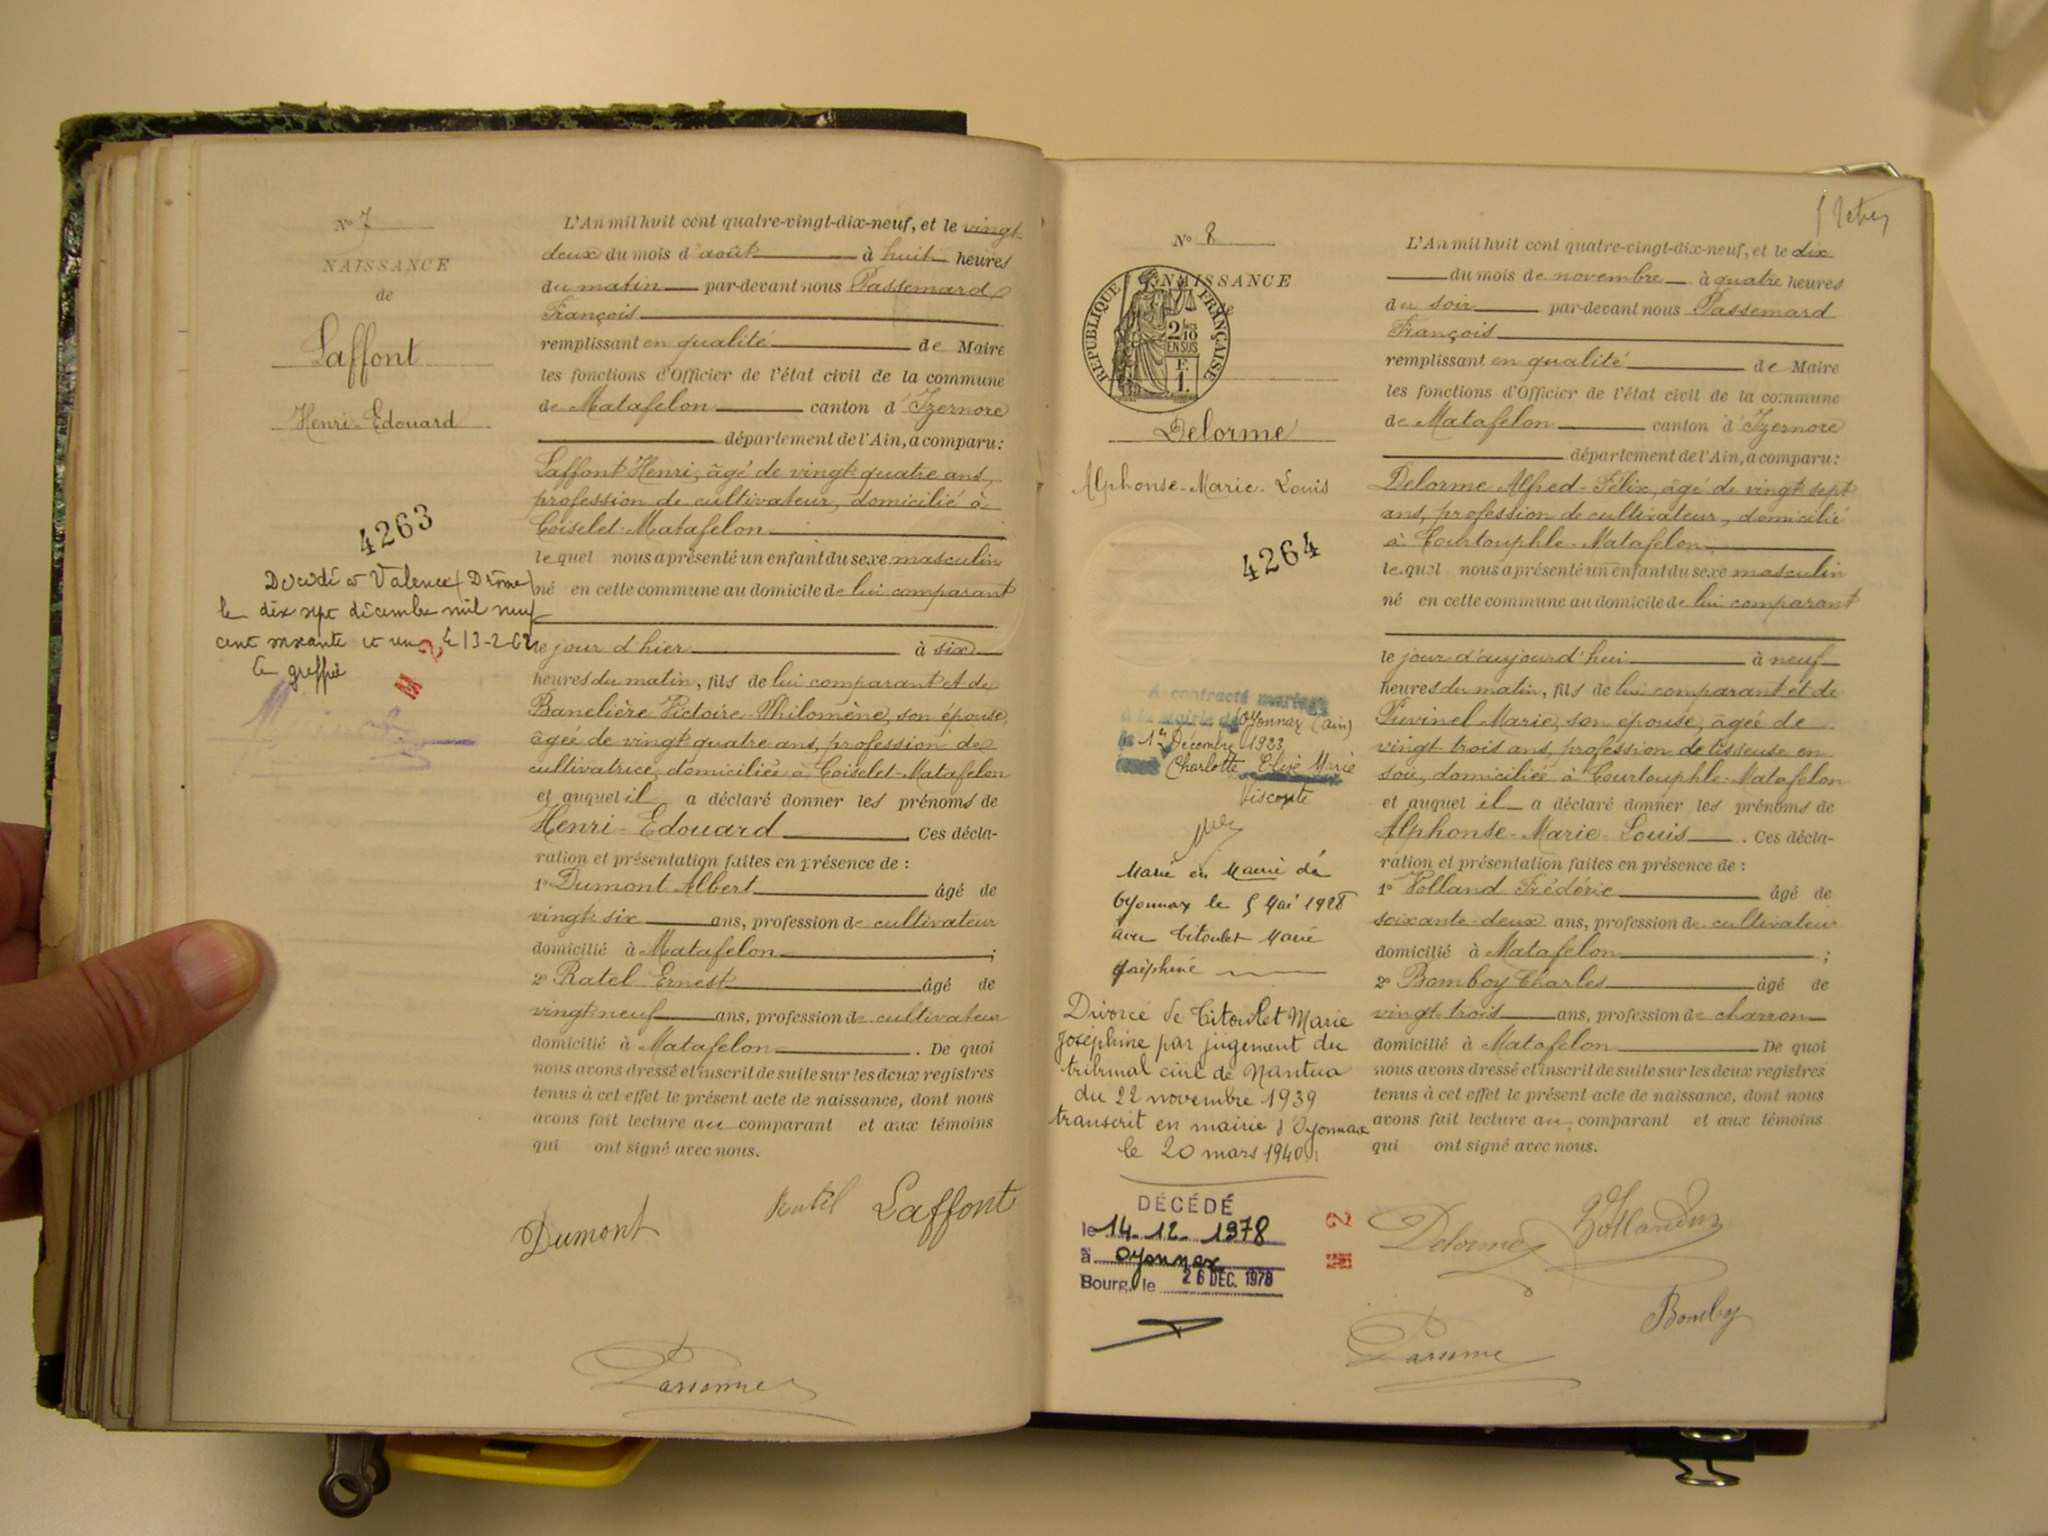 N° 7
NAISSANCE
de
Laffont
Henri-Edouard
4263
Décédé à Valence (Drôme)
le dix sept décembre mil neuf
cent soixante et un le 13-2-62
Le greffier
L'An mil huit cent quatre-vingt-dix-neuf, et le vingt-
deux du mois d'août à huit heures
du matin par-devant nous Passemard
François
remplissant en qualité de Maire
les fonctions d'Officier de l'état civil de la commune
de Matafelon canton d'Izernore
département de l'Ain, a comparu:
Laffont Henri, âgé de vingt quatre ans,
profession de cultivateur, domicilié à
Coiselet-Matafelon
le quel nous a présenté un enfant du sexe masculin
né en cette commune au domicile de lui comparant
le jour d'hier à six
heures du matin, fils de lui comparant et de
Banelière Victoire-Philomène, son épouse,
âgée de vingt quatre ans, profession de
cultivatrice, domiciliée à Coiselet-Matafelon
et auquel il a déclaré donner les prénoms de
Henri-Edouard. Ces décla-
ration et présentation faites en présence de :
1° Dumont Albert âgé de
vingt-six ans, profession de cultivateur
domicilié à Matafelon ;
2° Ratel Ernest âgé de
vingt-neuf ans, profession de cultivateur
domicilié à Matafelon. De quoi
nous avons dressé et inscrit de suite sur les deux registres
tenus à cet effet le présent acte de naissance, dont nous
avons fait lecture au comparant et aux témoins
qui ont signé avec nous.
Dumont Ratel Laffont
N° 8
NAISSANCE
RÉPUBLIQUE FRANÇAISE
2/10
EN SUS
F.
1.
Delorme
Alphonse-Marie-Louis
4264
A contracté mariage
à la Mairie de Oyonnax (Ain)
le 1er Décembre 1923
Charlotte Elise Marie
Viscoute
Marié en Mairie de
Oyonnax le 5 Mai 1928
avec Titoulet Marie
Joséphine
Divorcé de Titoulet Marie
Joséphine par jugement du
tribunal civil de Nantua
du 22 novembre 1939
transcrit en mairie d'Oyonnax
le 20 mars 1940
DÉCÉDÉ
le 14-12-1978
à Oyonnax
Bourg, le 26 DEC. 1978
L'An mil huit cent quatre-vingt-dix-neuf, et le dix
du mois de novembre à quatre heures
du soir par-devant nous Passemard
François
remplissant en qualité de Maire
les fonctions d'Officier de l'état civil de la commune
de Matafelon canton d'Izernore
département de l'Ain, a comparu:
Delorme Alfred-Félix, âgé de vingt sept
ans, profession de cultivateur, domicilié
à Courtouphle-Matafelon
le quel nous a présenté un enfant du sexe masculin
né en cette commune au domicile de lui comparant
le jour d'aujourd'hui à neuf
heures du matin, fils de lui comparant et de
Puvinel Marie, son épouse, âgée de
vingt trois ans, profession de tisseuse en
soie, domiciliée à Courtouphle-Matafelon
et auquel il a déclaré donner les prénoms de
Alphonse-Marie-Louis. Ces décla-
ration et présentation faites en présence de :
1° Volland Frédéric âgé de
soixante-deux ans, profession de cultivateur
domicilié à Matafelon ;
2° Bomboy Charles âgé de
vingt-trois ans, profession de charron
domicilié à Matafelon De quoi
nous avons dressé et inscrit de suite sur les deux registres
tenus à cet effet le présent acte de naissance, dont nous
avons fait lecture au comparant et aux témoins
qui ont signé avec nous.
Delorme Volland
Bomboy